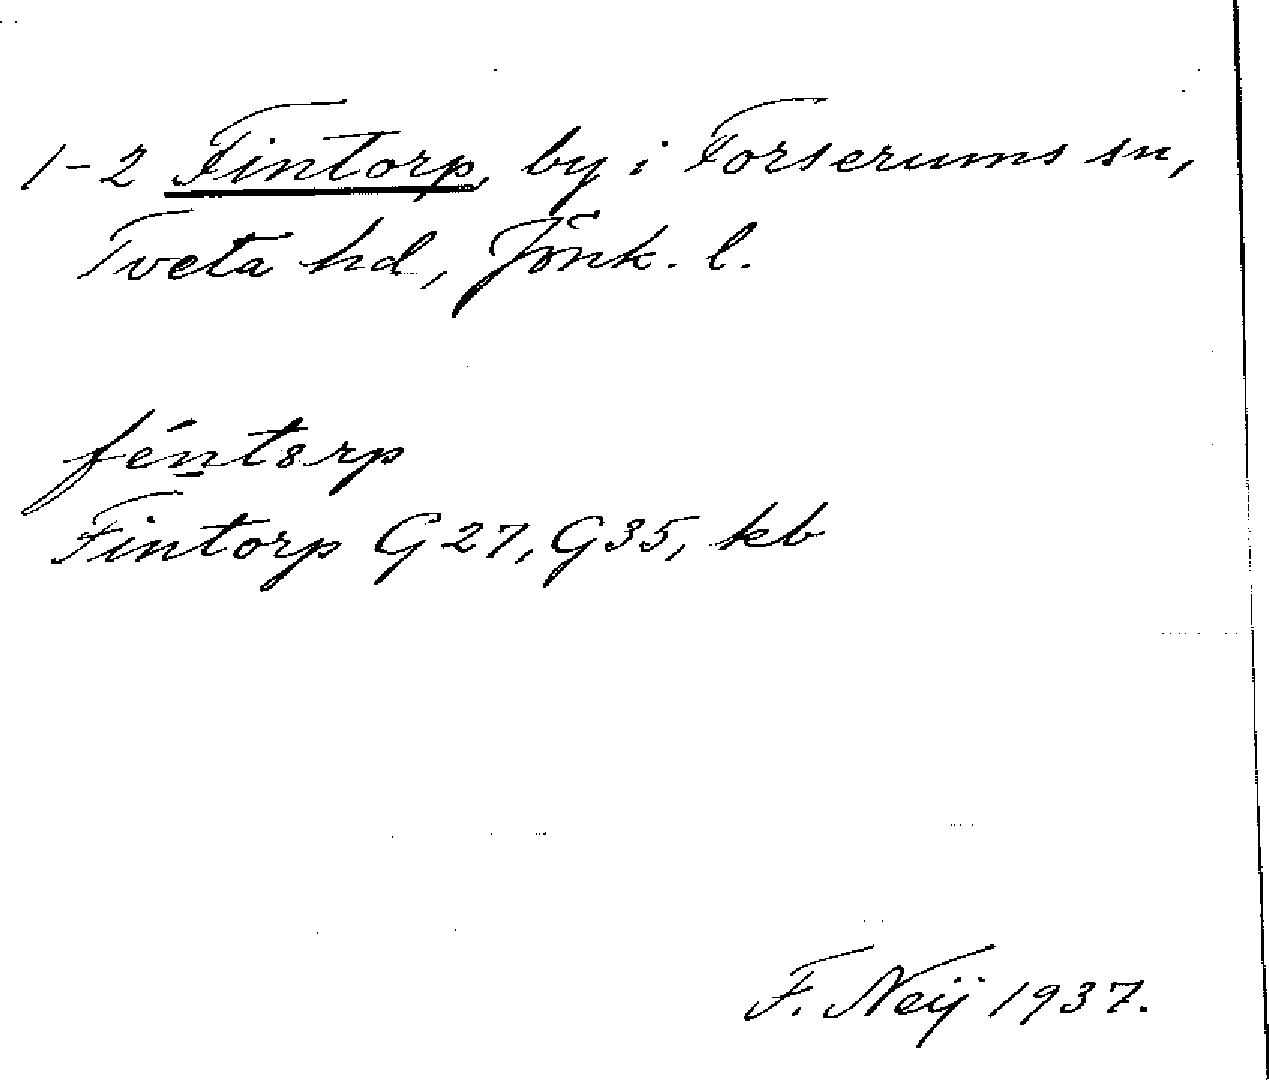 1-2 Fintorp, by i Forserums sn,
Tveta hd, Jönk. l.
féntorp
Fintorp G27, G35, kb
F. Neij 1937.